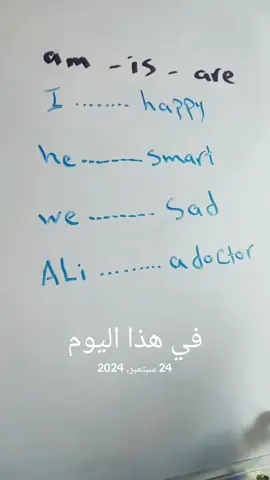 am - is - are
I ........ happy
he ------- smart
we -------- sad
ALi ......... a doctor
في هذا اليوم
24 سبتمبر، 2024